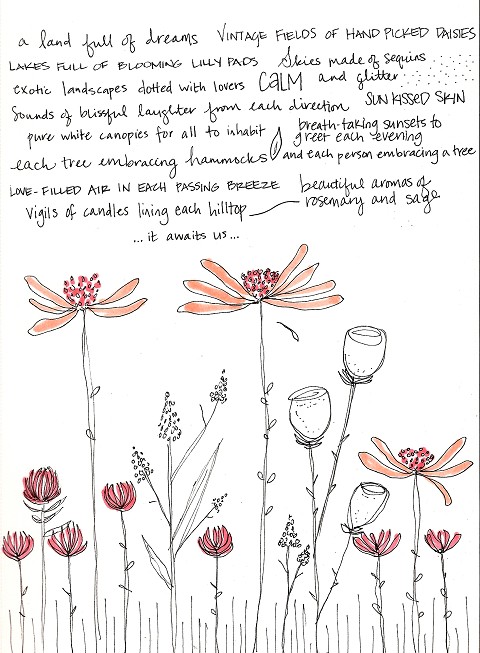 a land full of dreams VINTAGE FIELDS OF HAND PICKED DAISIES
LAKES FULL OF BLOOMING LILLY PADS Skies made of sequins
exotic landscapes dotted with lovers CALM and glitter
Sounds of blissful laughter from each direction SUN KISSED SKIN
pure white canopies for all to inhabit breath-taking sunsets to
greet each evening
each tree embracing hammocks and each person embracing a tree
LOVE-FILLED AIR IN EACH PASSING BREEZE beautiful aromas of
vigils of candles lining each hilltop rosemary and sage
...it awaits us...